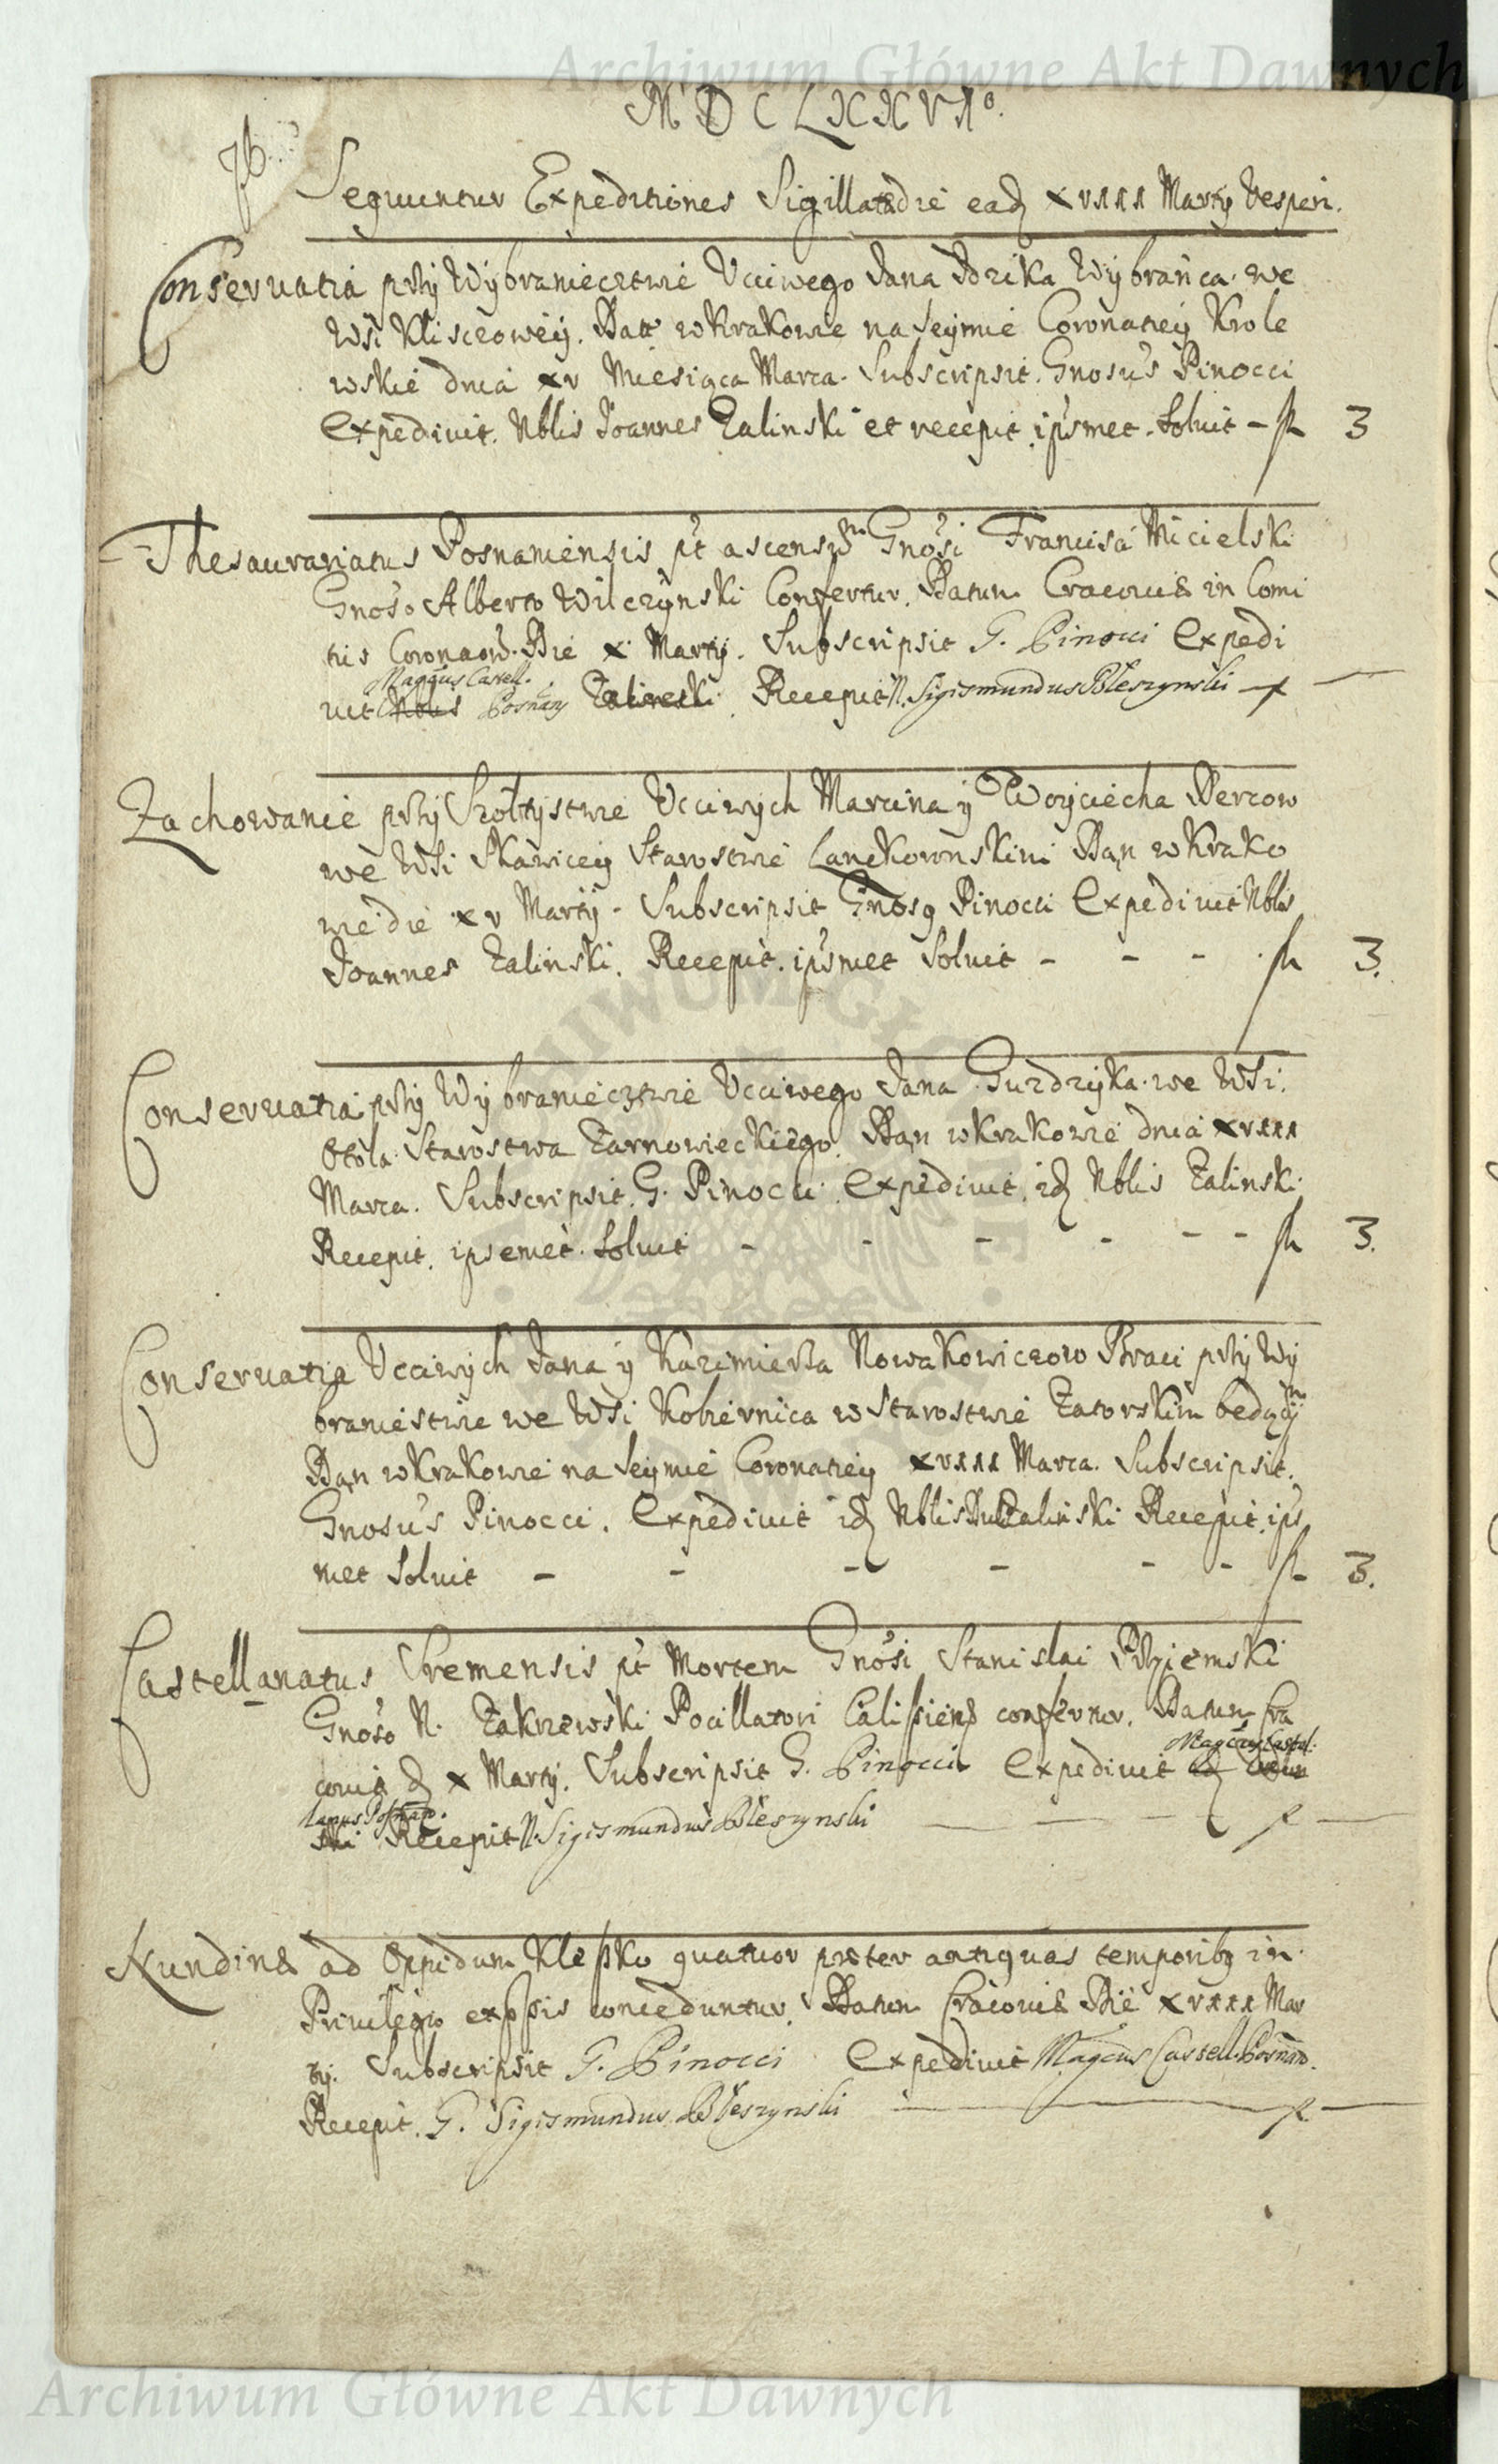 Archiwum Główne Akt Dawnych
MDCLXXVIº
76.
Sequuntur Expeditiones Sigillatæ die ead XVIII Martij Vesperi.
Conservatia przy Wybraniecztwie Ucciwego Jana Wybrańca we
Wsi Kliscẻowẻy. Datt w Krakowie na Seymie Coronatiẻy Krole
wskie dnia XV Miesiąca Marca. Subscripsit. Gnosus Pinocci
Expedivit. Nblis Joannes Zalinski et recepit ipsmet. Soluit – fl 3
Thesaurariatus Posnaniensis pt ascensum Gnosi Francisci Micielski
Gnoso Alberto Wilczynski Confertur. Datum Cracoviæ in Comi
tiis Coronaõis. Die X Martij. Subscripsit G. Pinocci Expedi
Magcus Castell.
vit Nblis Posnan Zalinski. Recepit N. Sigismundus Błeszynski – f –
Zachowanie przy Szołtystwie Ucciwych Marcina y Woyciecha Dercow
we Wsi Skawicey Starostwie Lanckorunskim Dan w Krako
wie die XV Martij – Subscripsit Gnosq Pinocci Expedivit Nblis
Joannes Zalinski. Recepit. ipsmet Soluit – – – fl 3.
Conservatia przy Wybraniecztwie Ucciwego Jana Guzdzyka we Wsi
Otola Starostwa Zarnowieckiego. Dan w Krakowie dnia XVIII
Marca. Subscripsit. G. Pinocci. Expedivit. id Nblis Zalinski
Recepit. ipsemet. Soluit – – – – – – fl 3.
Conservatia Ucciwych Jana y Kazimierza Nowakowiczow Braci przy Wy
braniestwie we Wsi Kobiernica w Starostwie Zatorskim będący
Dan w Krakowie na Seymie Coronatiey XVIII Marca. Subscripsit.
Gnosus Pinocci. Expedivit id Nblis Zalinski Recepit. ips
met Soluit – – – – – – fl 3.
Castellanatus Sremensis pt Mortem Gnosi Stanislai Przyiemski
Gnoso N. Zakrzewski Pocillatori Calissiens confertur. Datum Cra
Magcus Castel:
coviæ d X Martij. Subscripsit G. Pinocci Expedivit id
lanus Posnan.
ski Recepit N. Sigismundus Błeszynski – – f –
Nundinæ ad Oppidum Klepsko quatuor præter antiquas temporibq in
Privilegio exppsis conceduntur. Datum Cracoviæ Die XVIII Mar
tij. Subscripsit G. Pinocci Expedivit Magcus Castell. Posnan.
Recepit. G. Sigismundus Błeszynski – f –
Archiwum Główne Akt Dawnych